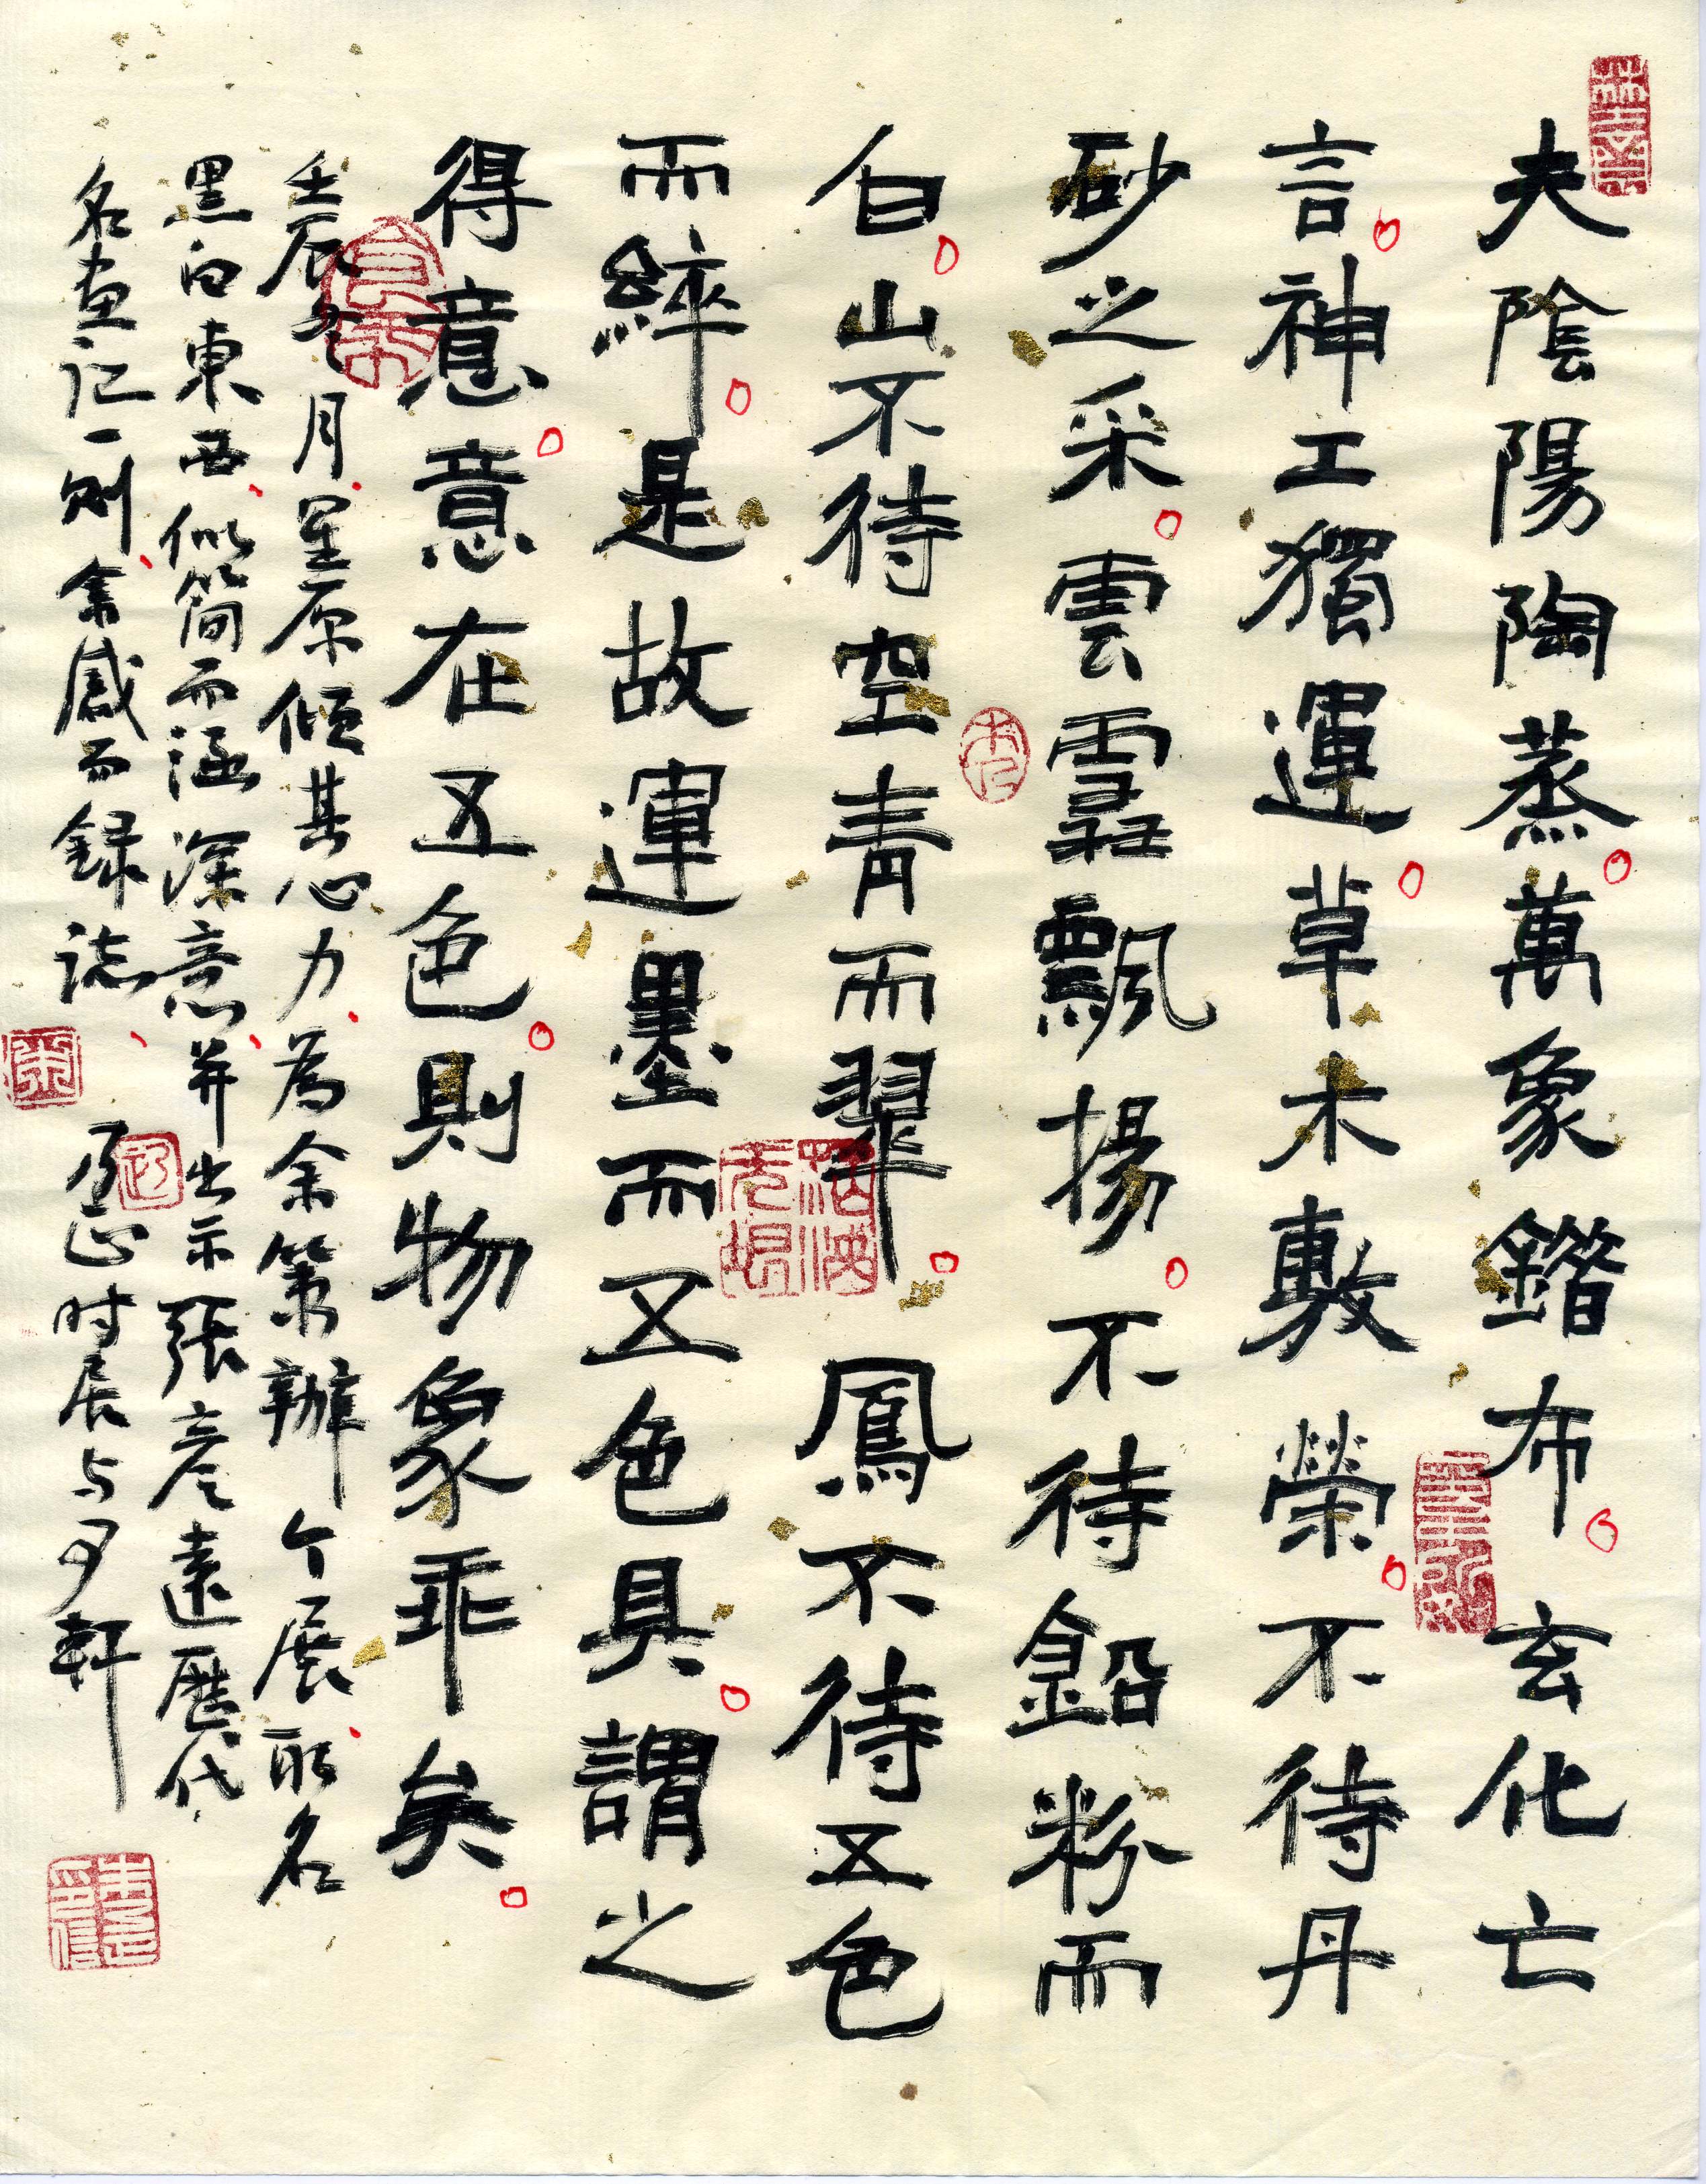 夫陰陽陶蒸萬象錯布玄化亡
言神工獨運草木敷榮不待丹
砂之采雲雪飄揚不待鉛粉而
白山不待空青而翠鳳不待五色
而綷是故運墨而五色具謂之
得意意在五色則物象乖矣
壬辰冬月星原傾其心力為余策辦个展取名
黑白東西似簡而涵深意并出示張彥遠歷代
名畫記一則余感而錄誌 乃正时居与歹軒